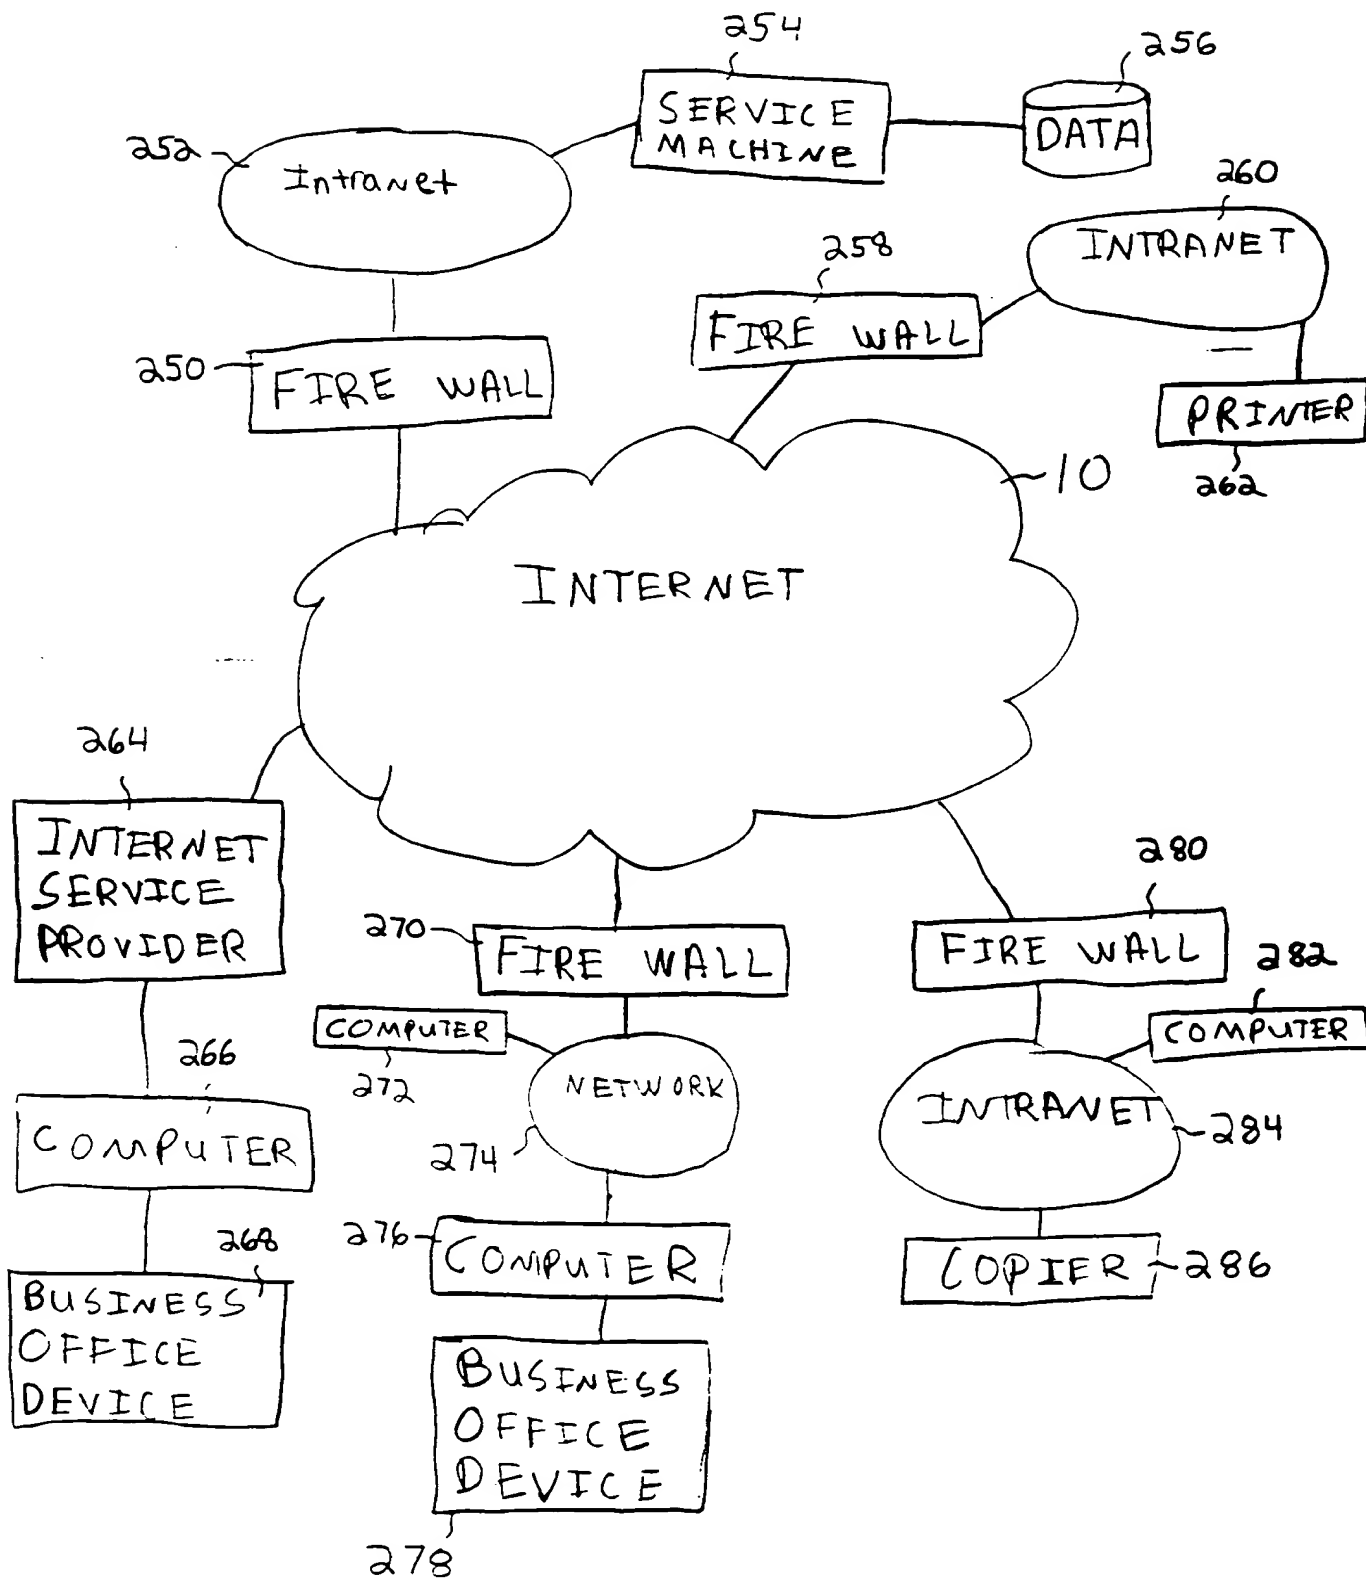 254
256
SERVICE
MACHINE
DATA
252
Intranet
260
INTRANET
258
FIRE WALL
250
FIRE WALL
PRINTER
262
10
INTERNET
264
INTERNET
SERVICE
PROVIDER
280
270
FIRE WALL
FIRE WALL
282
COMPUTER
COMPUTER
272
266
NETWORK
COMPUTER
274
INTRANET
284
276
COMPUTER
268
COPIER
286
BUSINESS
OFFICE
DEVICE
BUSINESS
OFFICE
DEVICE
278